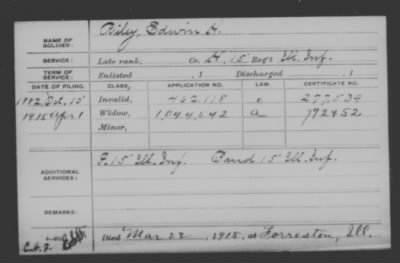 NAME OF SOLDIER: Riley, Edwin A.
SERVICE: Late rank, Co. H, 15 Reg't Ill. Inf.
TERM OF SERVICE: Enlisted , 1 Discharged , 1
DATE OF FILING. CLASS. APPLICATION NO. LAW. CERTIFICATE NO.
Oct. 15 Invalid, 452.118 277539
1915 Apr 1 Widow, 1,044,042 a 792452
Minor,
ADDITIONAL SERVICES: F. 15 Ill. Inf. Band 15 Ill. Inf.
REMARKS:
Died Mar 22, 1915, at Forreston, Ill.